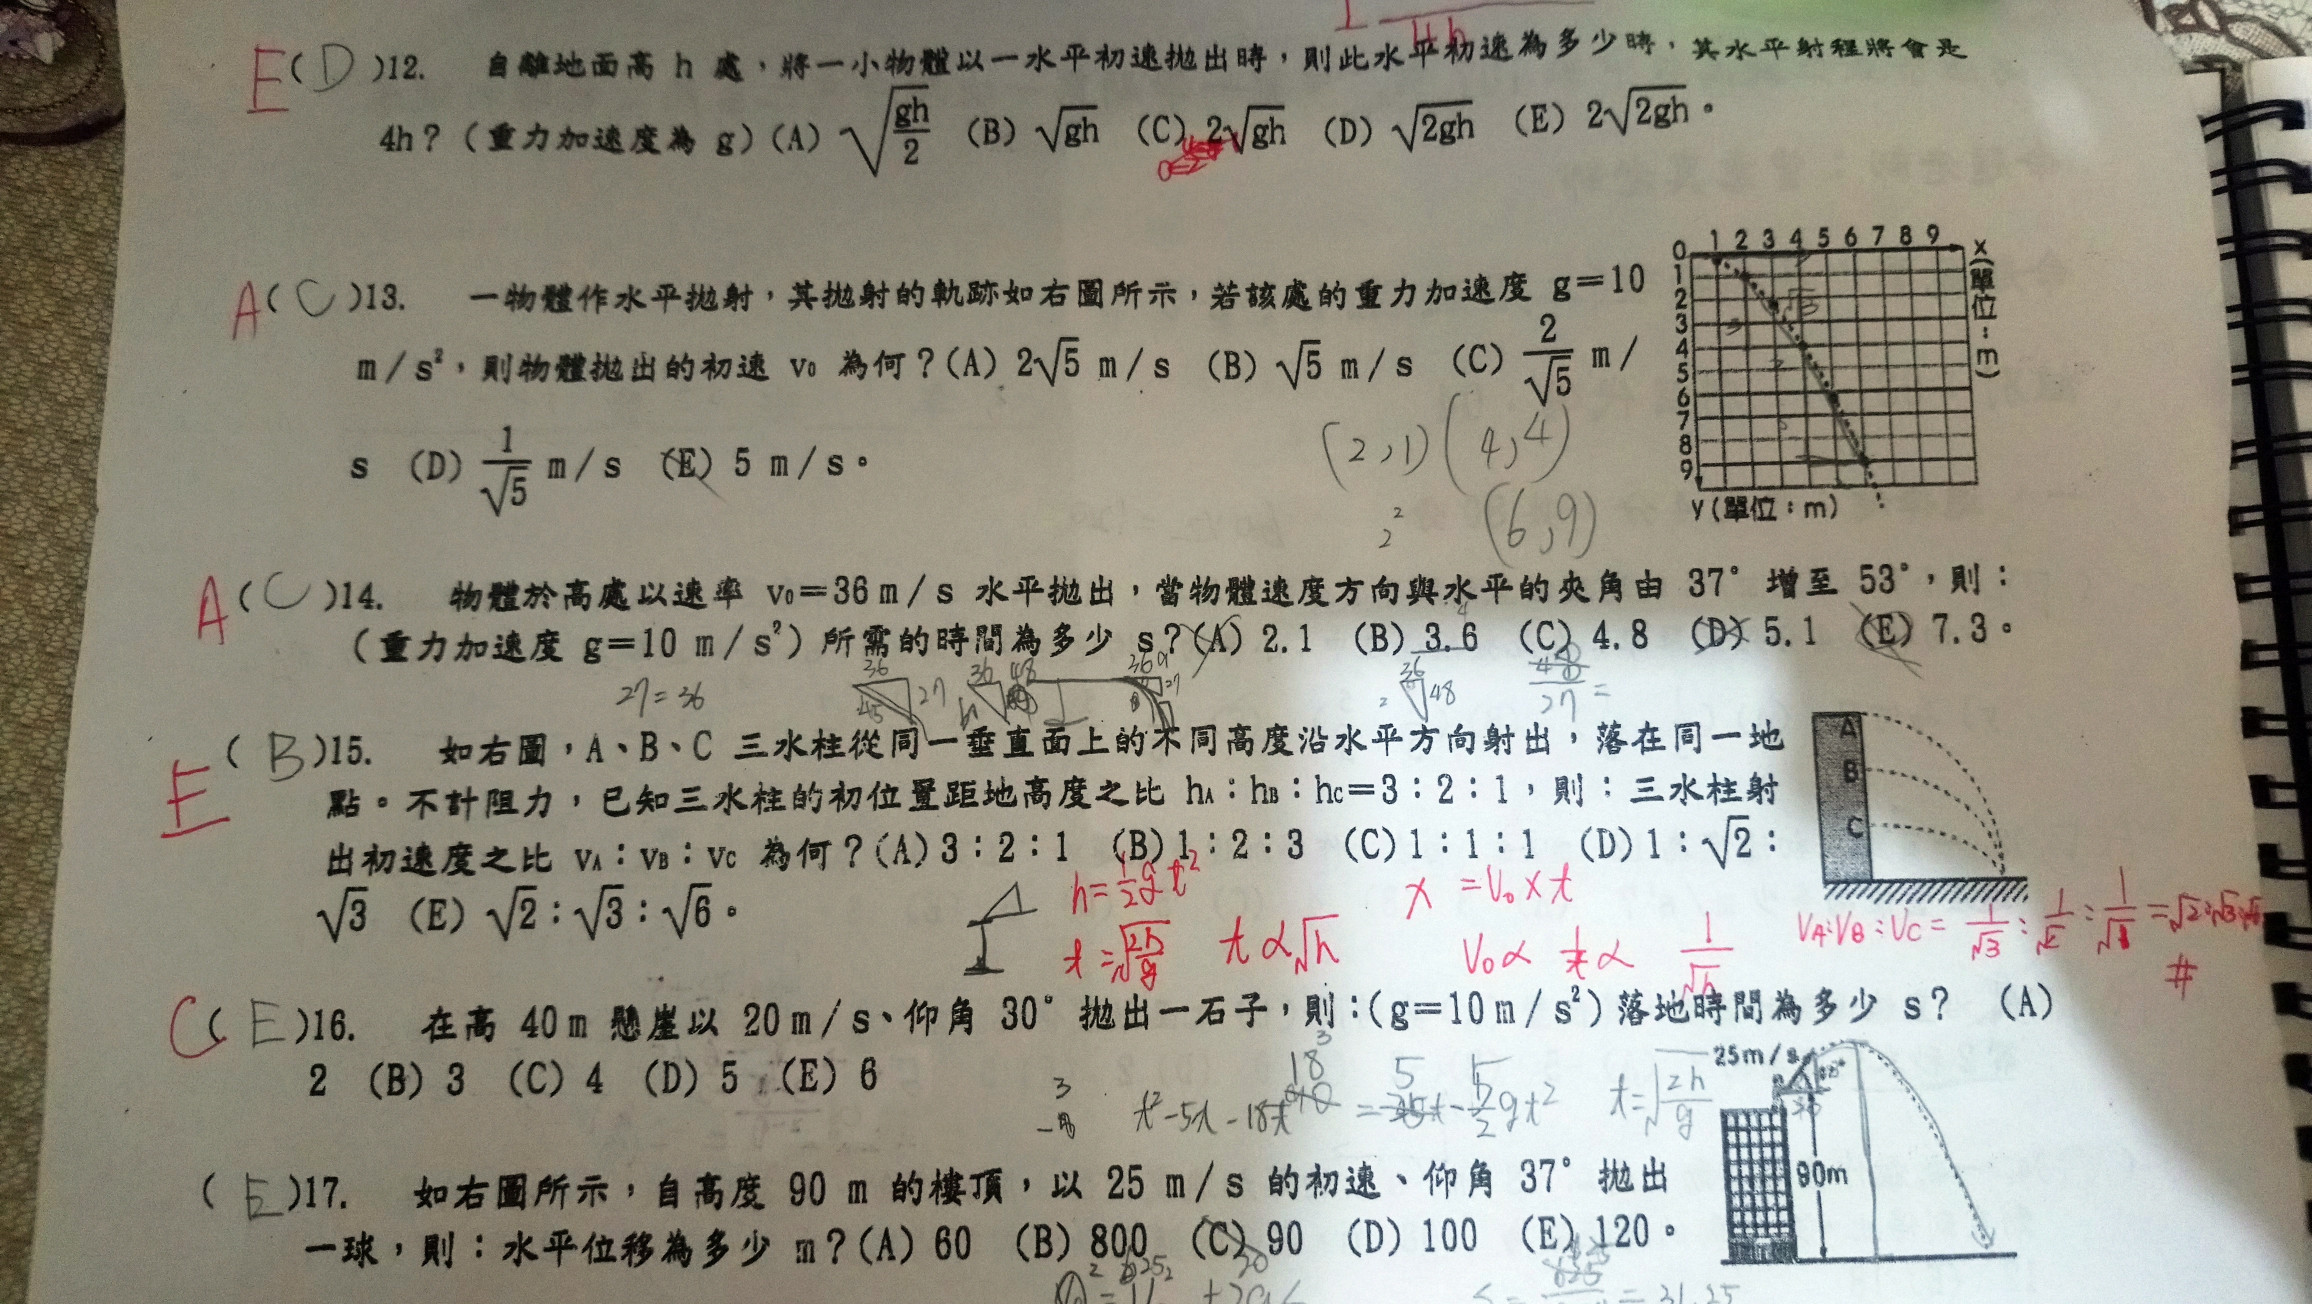 4h
E(D)12. 自離地面高 h 處，將一小物體以一水平初速拋出時，則此水平初速為多少時，其水平射程將會是
4h？（重力加速度為 g）(A) √(gh/2) (B) √gh (C) 2√gh (D) √2gh (E) 2√2gh。
A(C)13. 一物體作水平拋射，其拋射的軌跡如右圖所示，若該處的重力加速度 g＝10
m／s²，則物體拋出的初速 v₀ 為何？(A) 2√5 m／s (B) √5 m／s (C) 2/√5 m／
s (D) 1/√5 m／s (E) 5 m／s。
(2,1) (4,4)
(6,9)
0 1 2 3 4 5 6 7 8 9 x(單位：m)
1
2
3
4
5
6
7
8
9
y(單位：m)
A(C)14. 物體於高處以速率 v₀＝36 m／s 水平拋出，當物體速度方向與水平的夾角由 37° 增至 53°，則：
（重力加速度 g＝10 m／s²）所需的時間為多少 s？(A) 2.1 (B) 3.6 (C) 4.8 (D) 5.1 (E) 7.3。
27=36 36 27 45 36 48 36 48
E(B)15. 如右圖，A、B、C 三水柱從同一垂直面上的不同高度沿水平方向射出，落在同一地
點。不計阻力，已知三水柱的初位置距地高度之比 hA：hB：hC＝3：2：1，則：三水柱射
出初速度之比 vA：vB：vC 為何？(A) 3：2：1 (B) 1：2：3 (C) 1：1：1 (D) 1：√2：
√3 (E) √2：√3：√6。
A
B
C
h=½gt² x=V₀×t
t=√(2h/g) t∝√h V₀∝1/t∝1/√h
VA:VB:VC=1/√3:1/√2:1/√1=√2:√3:√6
#
C(E)16. 在高 40 m 懸崖以 20 m／s、仰角 30° 拋出一石子，則：(g＝10 m／s²) 落地時間為多少 s？ (A)
2 (B) 3 (C) 4 (D) 5 (E) 6
t²-5t-18t
t=√(2h/g)
(E)17. 如右圖所示，自高度 90 m 的樓頂，以 25 m／s 的初速、仰角 37° 拋出
一球，則：水平位移為多少 m？(A) 60 (B) 800 (C) 90 (D) 100 (E) 120。
25m/s
90m
=31.25